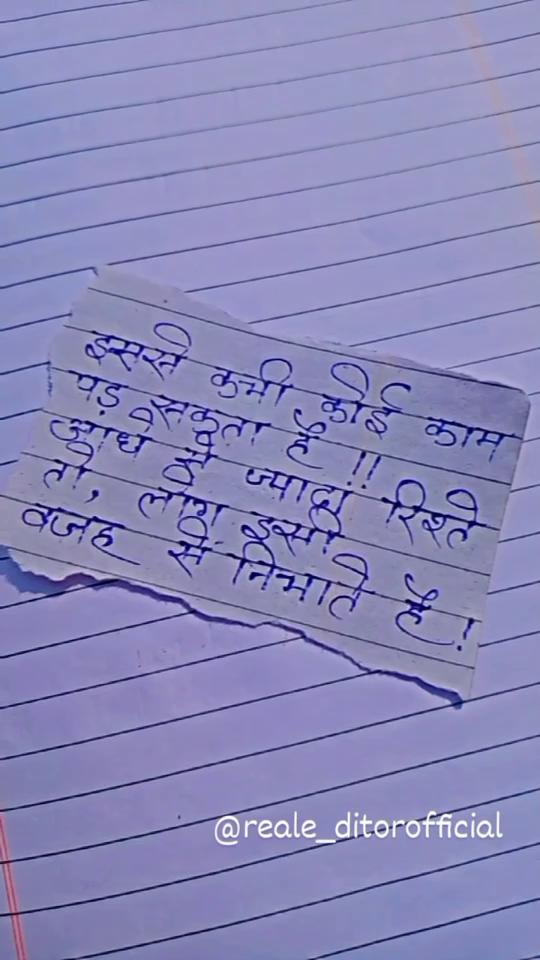 इससे कभी कोई काम
पड़ सकता है !!
आधे से ज्यादा रिश्ते
तो, लोग इसी
वजह से निभाते है !
@reale_ditorofficial